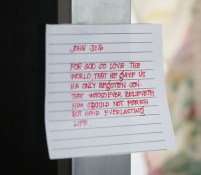 JOHN 3:16
FOR GOD SO LOVE THE
WORLD THAT HE GAVE US
HIS ONLY BEGOTEN SON
THAT WHOSOEVER BELIEVETH
HIM SHOULD NOT PERISH
BUT HAVE EVERLASTING
LIFE